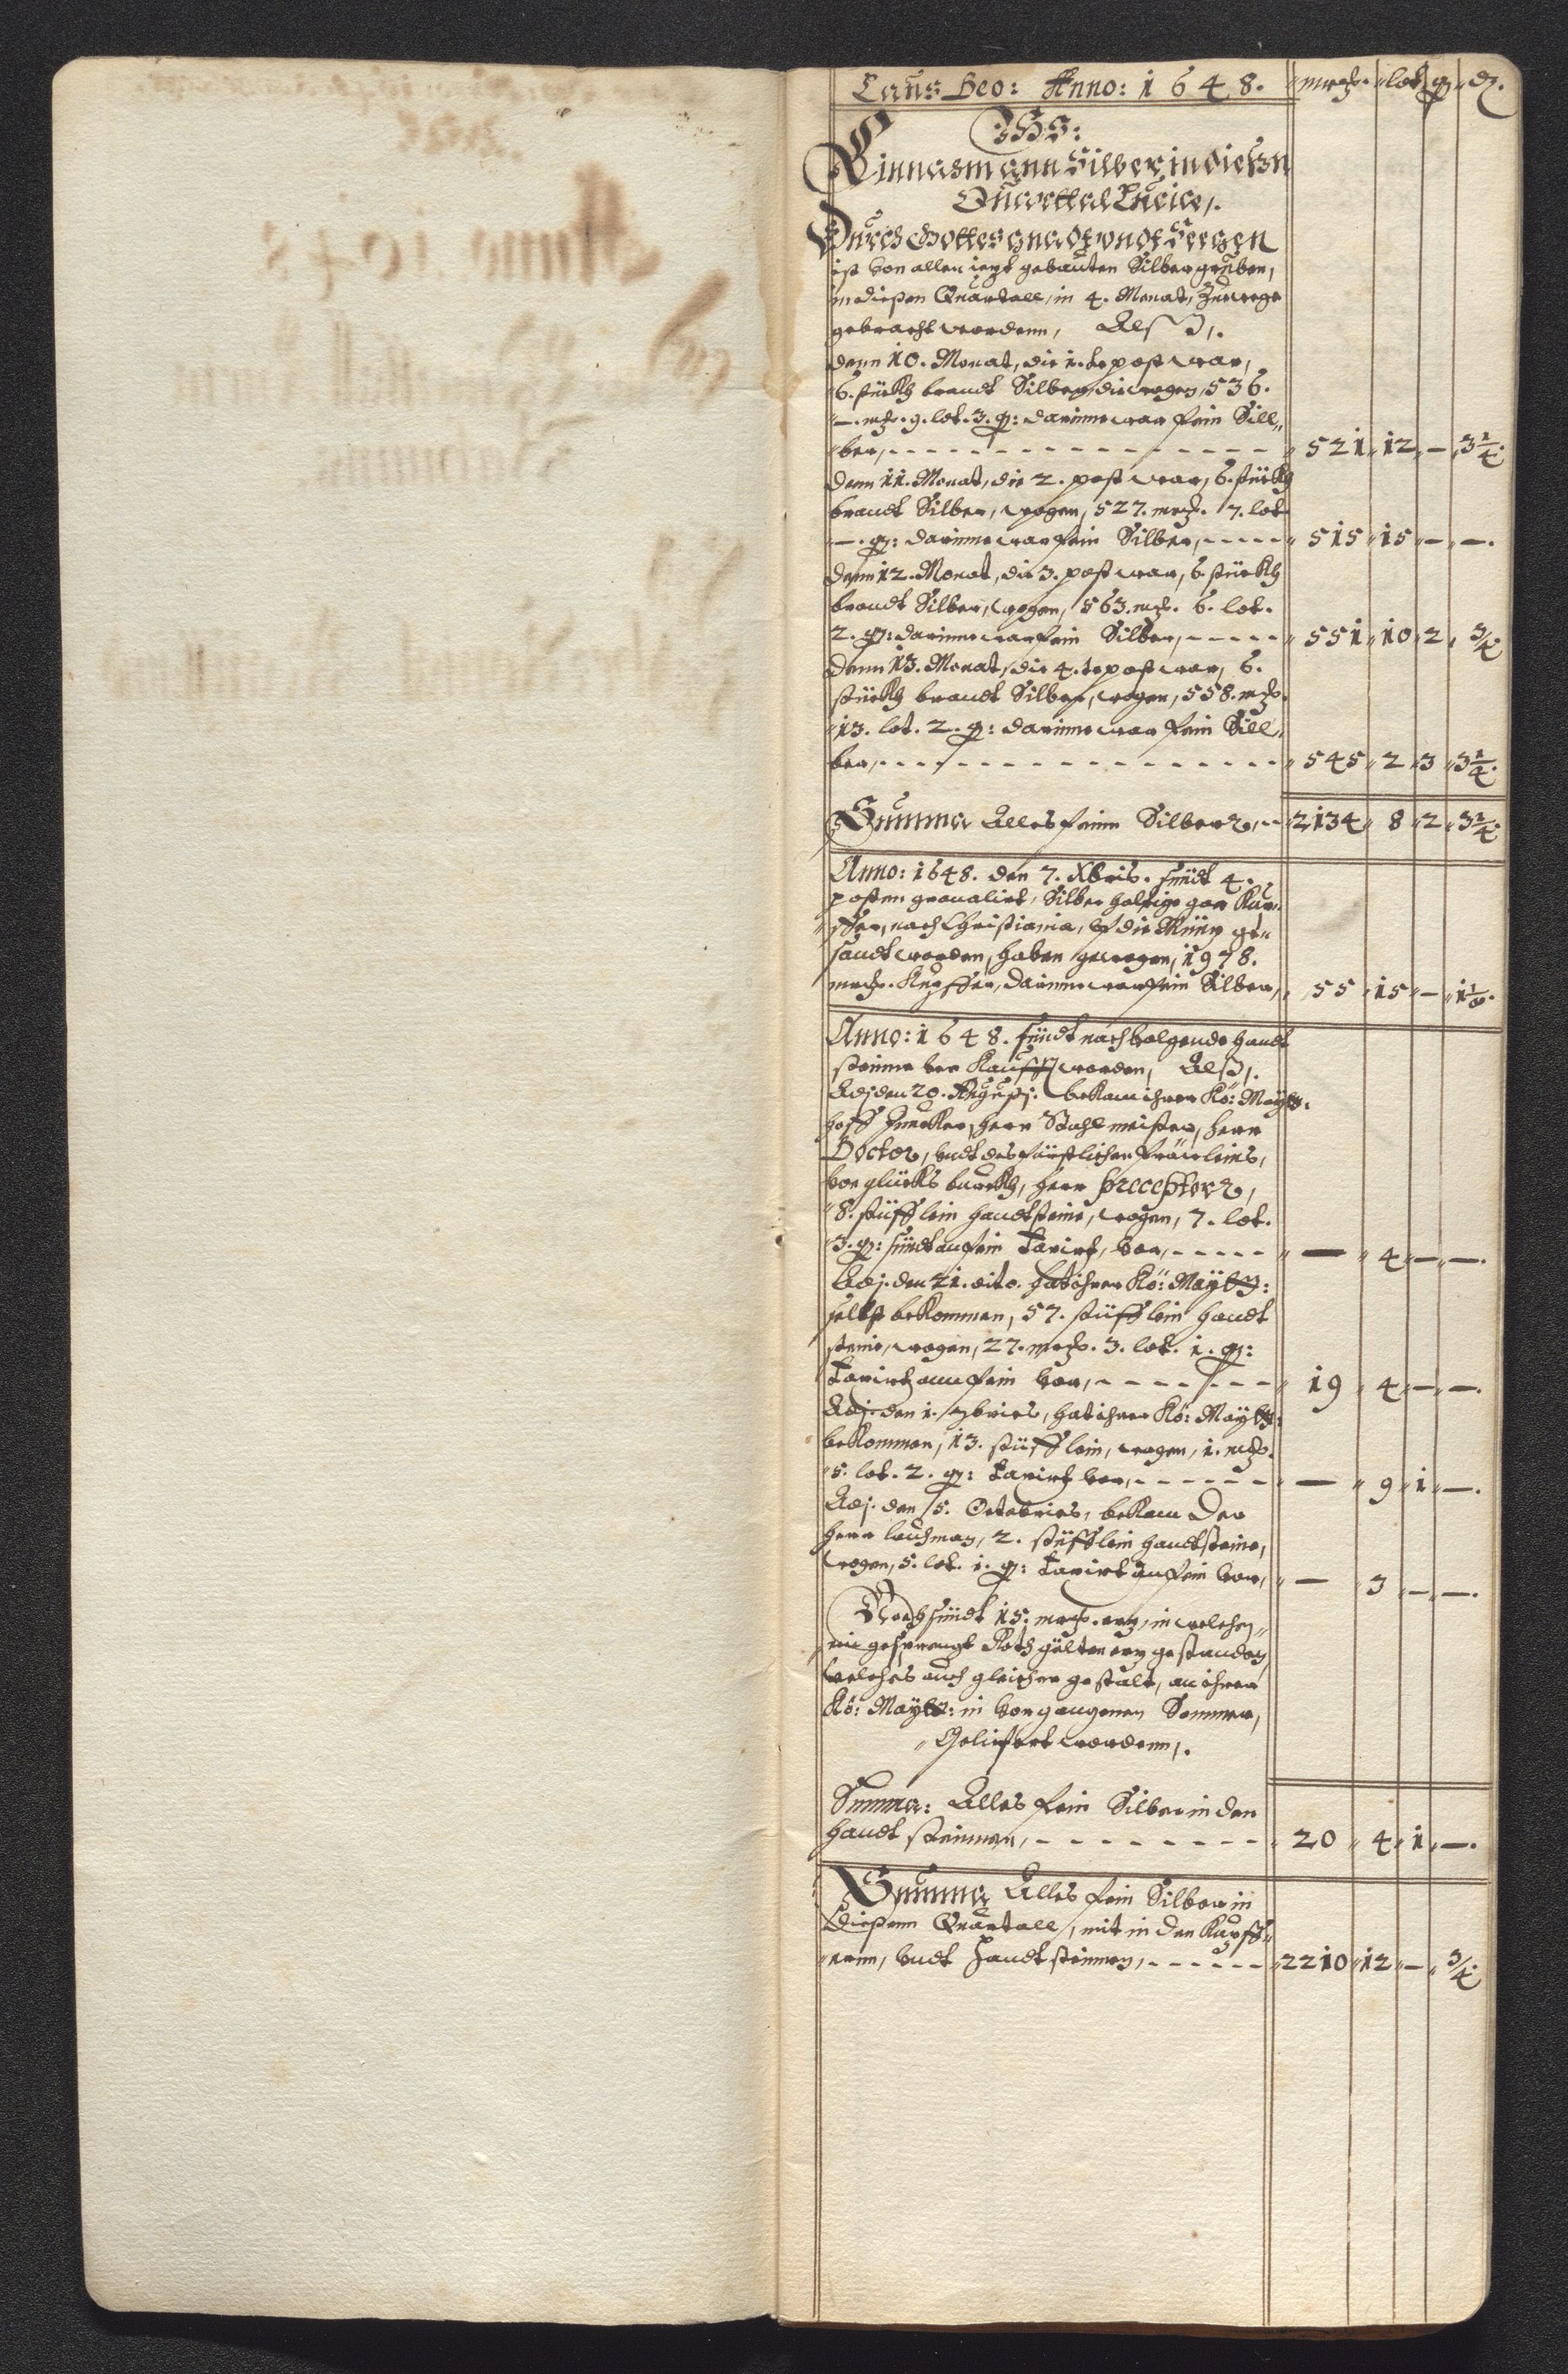 Laus Deo: Anno: 1648. mrck. lot q d.
IHS:
Einnasmann Silber in dießen
Quarttal Lucice,.
Durch Gottes gnad vnd Seegen
ist von allen ietzt gebauten Silbergruben,
in dießen Quartall, in 4. Monat, Zuwege
gebracht wordenn, Alß,.
Denn 10. Monat, die 1.te post war,
6. stückh brandt Silber, die wogen, 536.
—. mk. 9. lot. 3. q: darinne war fein Sill„
ber, - - - - - 521 12 — 3 1/4.
Denn 11. Monat, die 2. post war, 6. stückh
brandt Silber, wogen, 527. mrk. 7. lot
—. q: darinne war fein Silber, - - - - 515 15 — —.
Denn 12. Monat, die 3. post war, 6. stückh
brandt Silber, wogen, 563. mk. 6. lot.
2. q: darinne war fein Silber, - - - - 551 10 2 3/4
Denn 13. Monat, die 4.te post war, 6.
stückh brandt Silber, wogen, 558. mk.
13. lot. 2. q: darinne war fein Sill„
ber, - - - - - 545 2 3 3 1/4.
Summa Alles feinn Silber, - - 2134 8 2 3 1/4.
Anno: 1648. den 7. Xbris. sündt 4.
posten granalirt, Silber haltige gar Kup„
ffer, nach Christiania, vf die Müntz ge„
sandt worden, haben gewogen, 1978.
mrck. Kupffer, darinne war fein Silber, 55 15 — 1 1/8.
Anno: 1648. sündt nachvolgende handt
steinne ver Kaufft worden, Alß,.
Adj den 20. Augustj. bekam ihrer Kö: Maytt:
hoff Junker, herr Stahlmeister, herr
Doctor, vndt des fürstlichen fräuleins,
von glücks burckh, herr Preceptorr,
8. stüfflein handtsteine, wogen, 7. lot.
3. q: sündt an fein Taxirt, vor, - - - - — 4 — —.
Adj. den 21. dito. hat ihrer Kö: Maytt:
selbst bekommen, 57. stüfflein handt
steine, wogen, 27. mrck. 3. lot. 1. q:
Taxirt ann fein vor, - - - - - 19 4 — —.
Adj. den 1. 7bries, hat ihrer Kö: Maytt:
bekommen, 13. stüfflein, wogen, 1. mk.
5. lot. 2. q: Taxirt vor, - - - - - — 9 1 —.
Adj. den 5. Octobries, bekam der
herr lauhman, 2. stüfflein handtsteine,
wogen, 5. lot. 1. q: Taxirt an fein vor, — 3 — —.
Noch sündt 15. mrck. ertz, in welchen„
ein gesprengt Roth gülten ertz gestanden,
welches auch gleicher gestalt, an ihrer
Kö: Maytt: in vergangenen Sommer,
Geliefert wordenn,.
Summa: Alles fein Silber in den
handt steinnen, - - - - - 20 4 1 —.
Summa Alles fein Silber in
dießenn Quartall, mit in den Kupff„
ernn, vndt Handt steinnen, - - - - 2210 12 — 3/4.